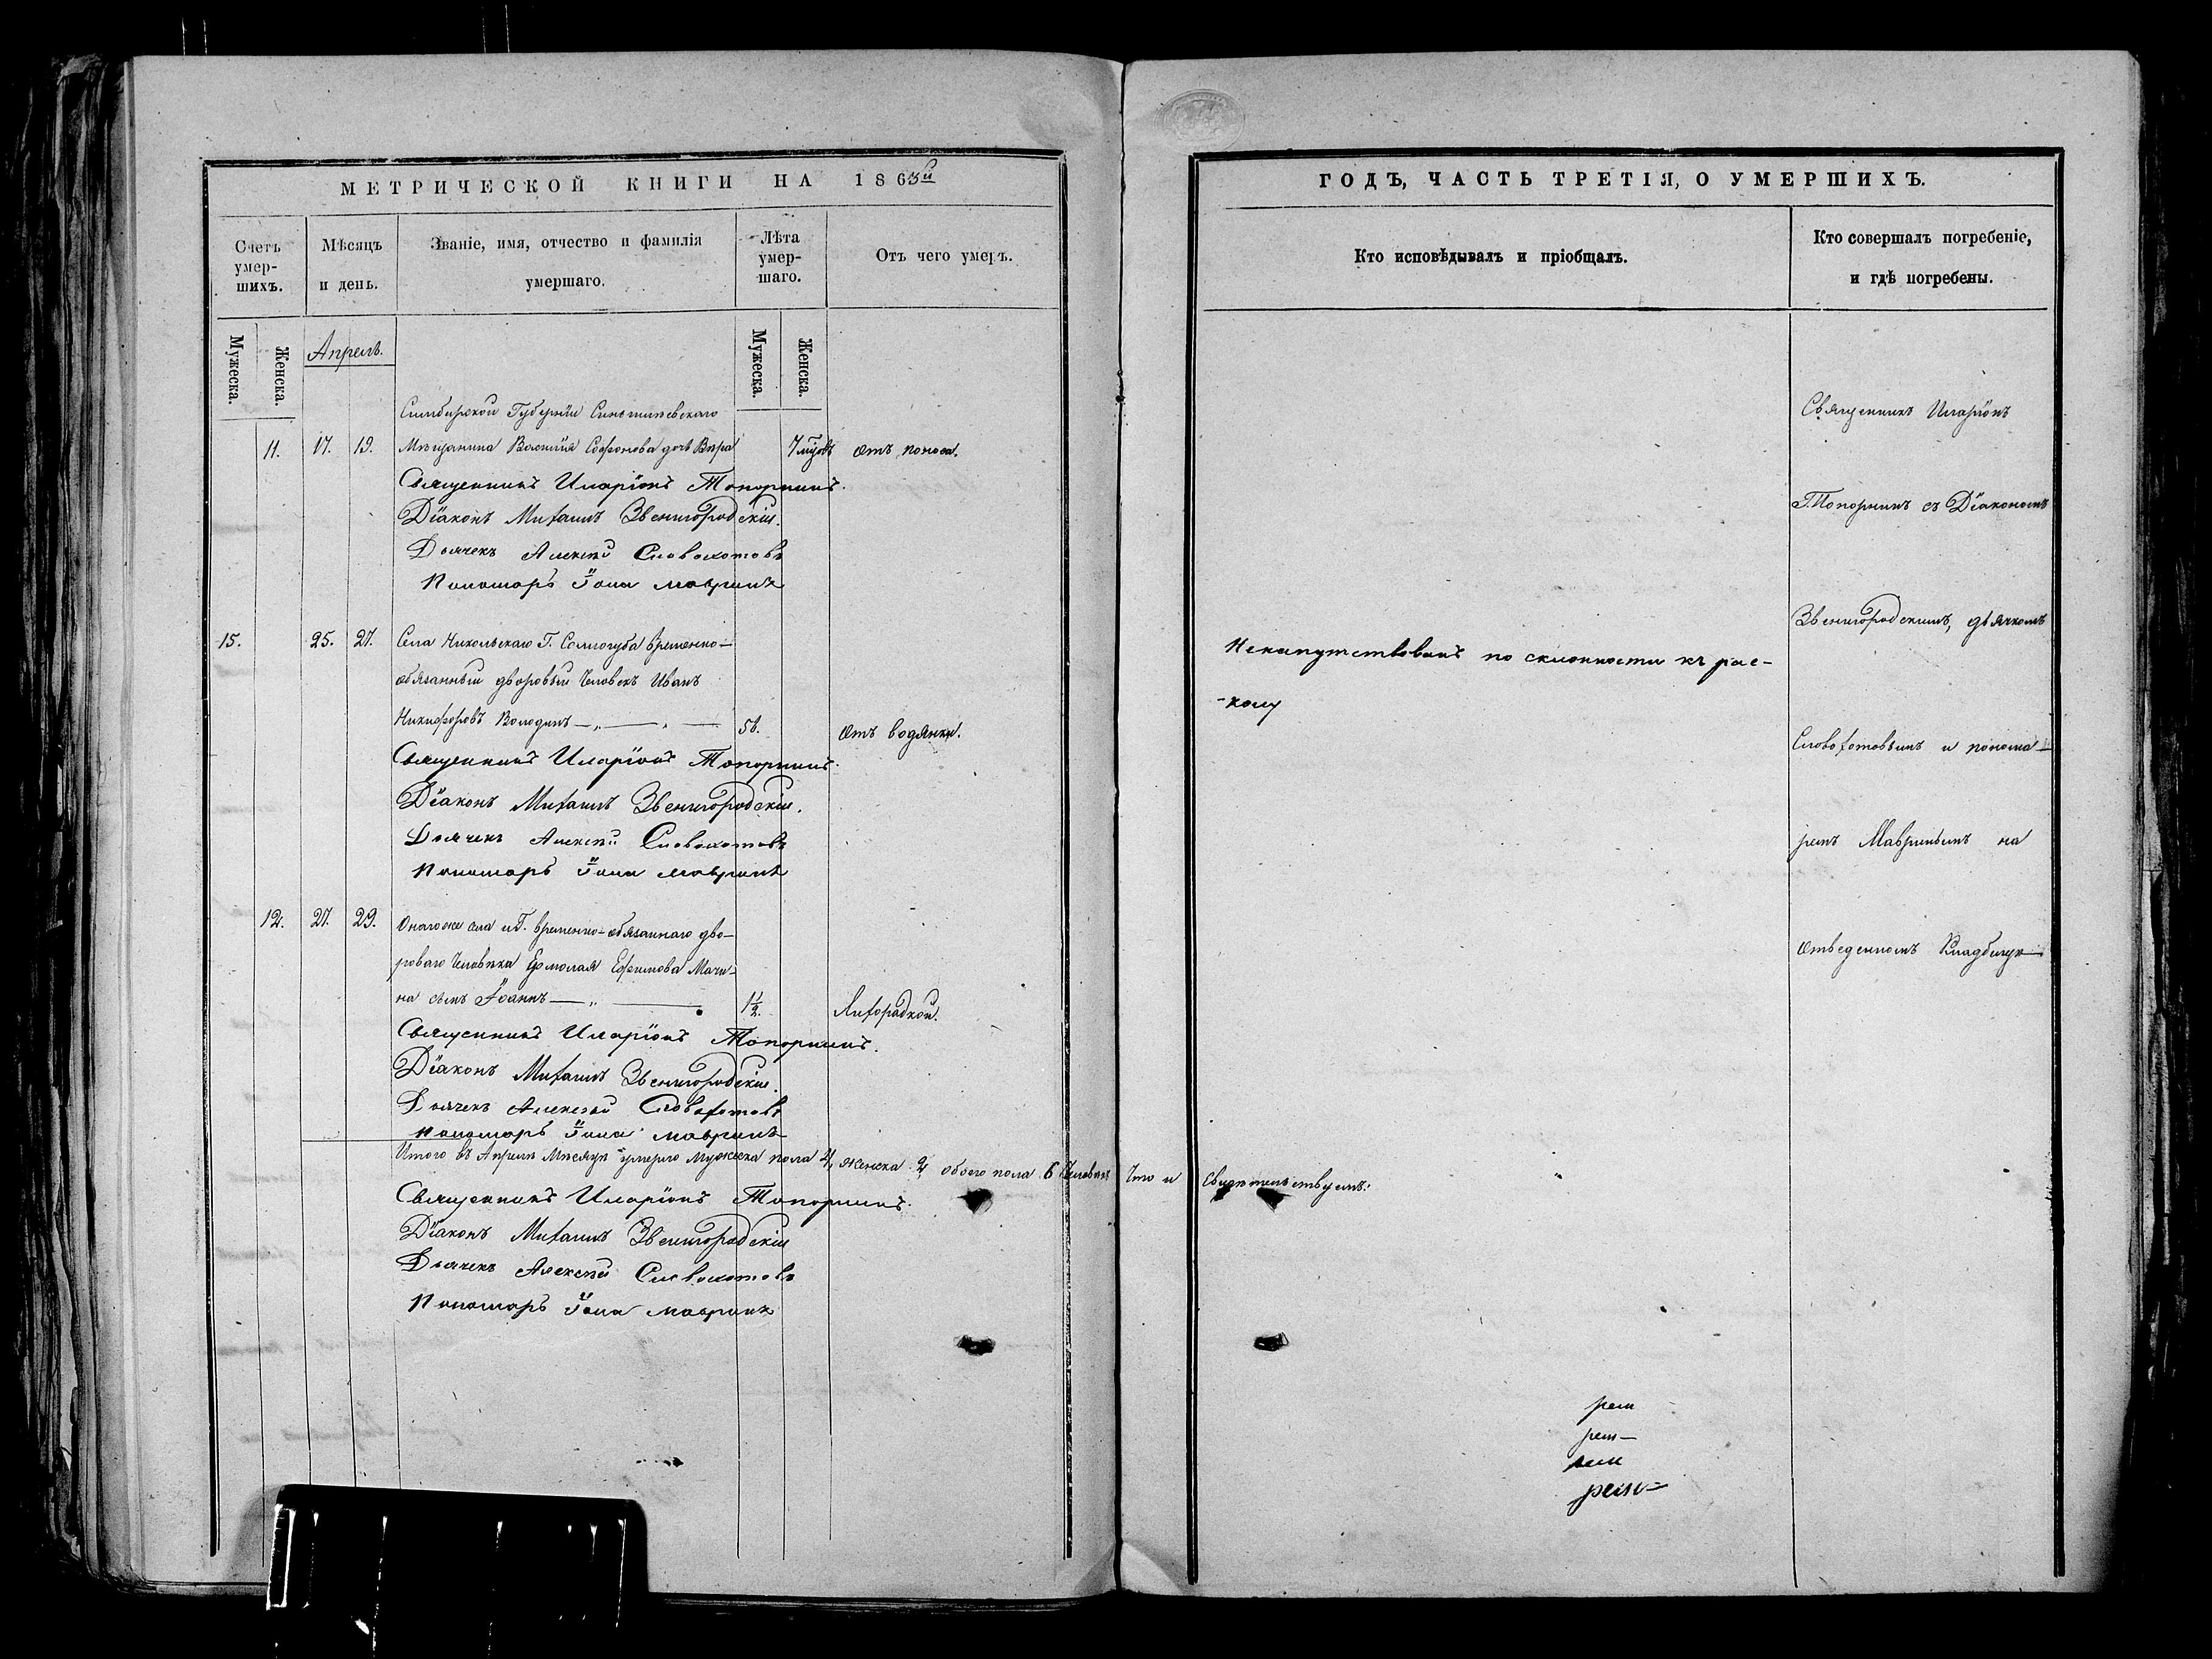 МЕТРИЧЕСКОЙ КНИГИ НА 1863й
Счетъ умер- шихъ.
Мѣсяцъ и день.
Званіе, имя, отчество и фамилія умершаго.
Лѣта умер- шаго.
Отъ чего умеръ.
Мужеска.
Женска.
Апрель.
Мужеска.
Женска.
Симбирской Губерніи
11. 17. 19. Мѣщанина Василія Софонова дочь Вѣра 7 отъ поноса.
Священникъ Иларіонъ Топорнинъ.
Діаконъ Михаилъ Звенигородскій.
Дьячекъ Алексѣй Словохотовъ
Пономарь Іона Мавринъ
15. 25. 27. Села Никольскаго Г. Сологуба временно-
обязанный дворовый человекъ Иванъ
Никифоровъ Володинъ — „ — „ — 56. Отъ водянки.
Священникъ Иларіонъ Топорнинъ.
Діаконъ Михаилъ Звенигородскій.
Дьячекъ Алексѣй Словохотовъ
Пономарь Іона Мавринъ
12. 27. 29. Онаго же села и Г. временно-обязаннаго дво-
роваго человѣка Ермолая Ефимова Мачи-
на сынъ Іоаннъ — „ — 1 1/2. Лихорадкой.
Священникъ Иларіонъ Топорнинъ.
Діаконъ Михаилъ Звенигородскій.
Дьячекъ Алексѣй Словохотовъ
Пономарь Іона Мавринъ
Итого въ Апрелѣ Мѣсяцѣ умерло мужеска пола 4, женска 2, обоего пола 6 человѣкъ Что и Свидѣтельствуемъ:
Священникъ Иларіонъ Топорнинъ.
Діаконъ Михаилъ Звенигородскій
Дьячекъ Алексѣй Словохотовъ
Пономарь Іона Мавринъ
ГОДЪ, ЧАСТЬ ТРЕТІЯ, О УМЕРШИХЪ.
Кто исповѣдывалъ и пріобщалъ.
Кто совершалъ погребеніе, и гдѣ погребены.
Ненапутствованъ по склонности къ рас-
-колу
Священникъ Иларіонъ
Топорнинъ съ Діакономъ
Звенигородскимъ, дьячкомъ
Словохотовымъ и понома-
ремъ Мавринымъ на
отведенномъ Кладбищѣ